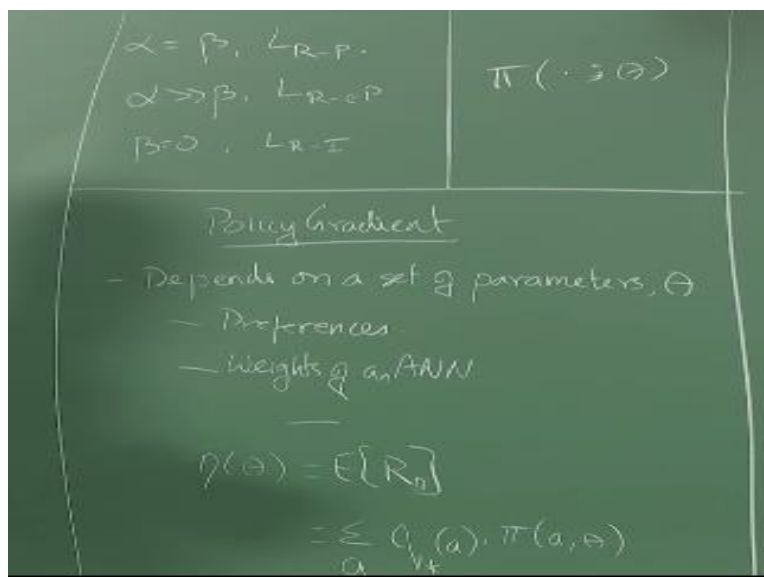 α = β, L_R-P.
α >> β, L_R-εP
β = 0, L_R-I
π(·; θ)
Policy Gradient
- Depends on a set of parameters, θ
- Preferences
- Weights of an ANN
—
η(θ) = E[R_n]
= Σ_a q_*(a) · π(a, θ)